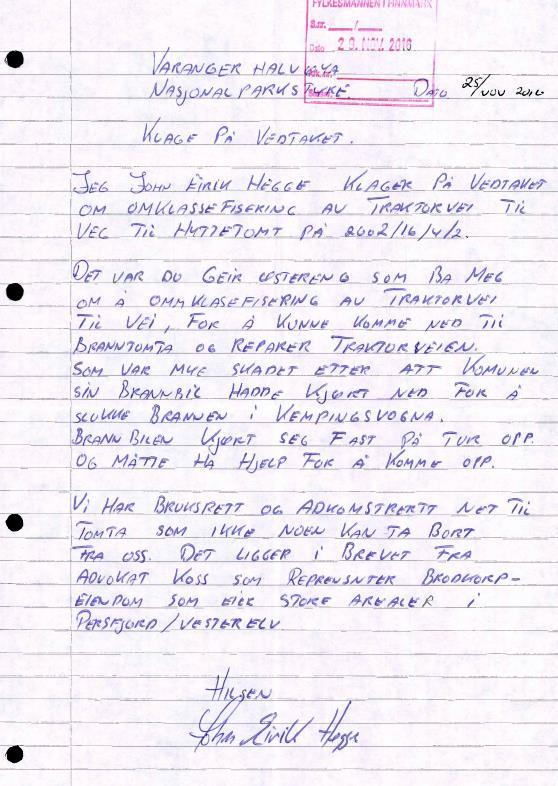 FYLKESMANNEN I FINNMARK
S.nr. /
Dato 29. NOV. 2016
VARANGER HALVØYA
NASJONALPARKSTYRE. DATO 25/NOV 2016
KLAGE PÅ VEDTAKET.
JEG JOHN EIRIK HEGGE KLAGER PÅ VEDTAKET
OM OMKLASSEFISERING AV TRAKTORVEI TIL
VEG TIL HYTTETOMT PÅ 2002/16/4/2.
DET VAR DU GEIR ØSTERENG SOM BA MEG
OM Å OMMKLASEFISERING AV TRAKTORVEI
TIL VEI, FOR Å KUNNE KOMME NED TIL
BRANNTOMTA OG REPARER TRAKTORVEIEN.
SOM VAR MYE SKADET ETTER ATT KOMUNEN
SIN BRANNBIL HADDE KJØRT NED FOR Å
SLUKKE BRANNEN I KEMPINGSVOGNA.
BRANN BILEN KJØRT SEG FAST PÅ TUR OPP.
OG MÅTTE HA HJELP FOR Å KOMME OPP.
VI HAR BRUKSRETT OG ADKOMSTRERTT NET TIL
TOMTA SOM IKKE NOEN KAN TA BORT
FRA OSS. DET LIGGER I BREVET FRA
ADVOKAT KOSS SOM REPRENSNTER BRODKORP-
EIENDOM SOM EIER STORE AREALER I
PERSFJORD/VESTERELV
HILSEN
John Eirik Hegge